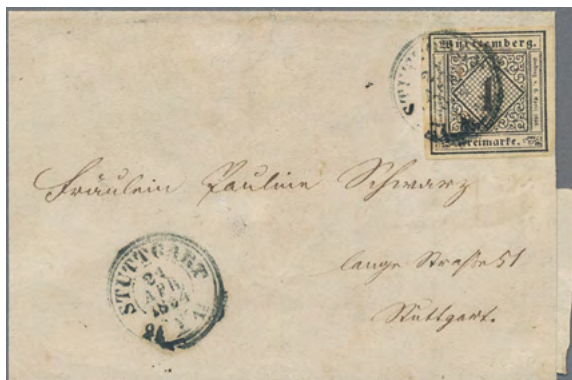 Württemberg.
1
Freimarke.
Fräulein Pauline Schwarz
lange Straße 51
Stuttgart.
STUTTGART
21
APR
1854